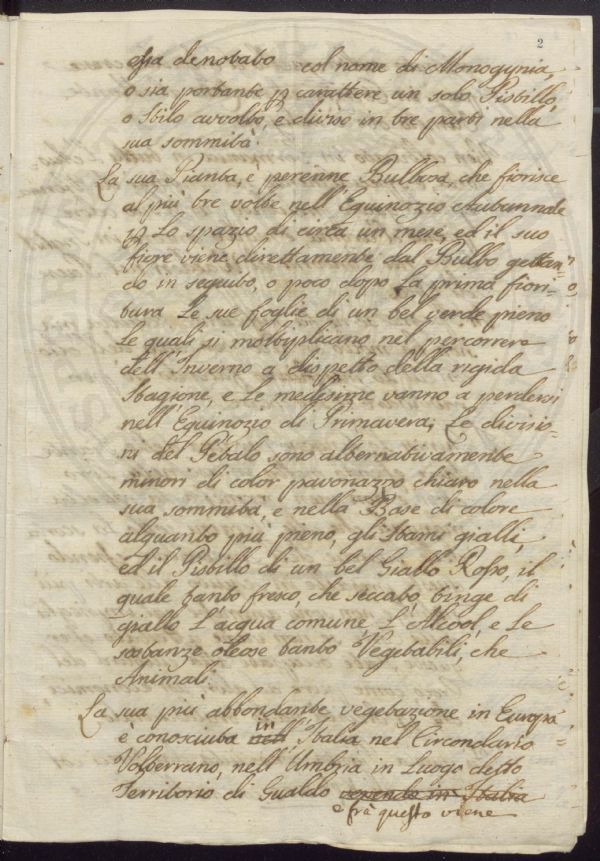 2
essa denotato col nome di Monogynia,
o sia portante p carattere un solo Pistillo,
o Stilo avvolto, e diviso in tre parti nella
sua sommità.
La sua Pianta, e perenne Bulbosa, che fiorisce
al più tre volte nell'Equinozzio Autunnale
p Lo spazio di circa un mese, ed il suo
fiore viene direttamente dal Bulbo gettan=
do in seguito, o poco dopo La prima fiori=
tura Le sue foglie di un bel verde pieno
Le quali si moltiplicano nel percorrere
dell'Inverno a dispetto della rigida
Stagione, e Le medesime vanno a perdersi
nell'Equinozio di Primavera; Le divisio=
ni del Petalo sono alternativamente
minori di color pavonazzo chiaro nella
sua sommità, e nella Base di colore
alquanto più pieno, gli Stami gialli,
ed il Pistillo di un bel Giallo Rosso, il
quale tanto fresco, che seccato tinge di
giallo L'acqua comune, L'Alcool, e Le
sostanze oleose tanto Vegetabili, che
Animali.
La sua più abbondante vegetazione in Europa
è conosciuta nell' in Italia nel Circondario
Volterrano, nell'Umbria in Luogo detto
Territorio di Gualdo venendo in Italia
e frà questo viene